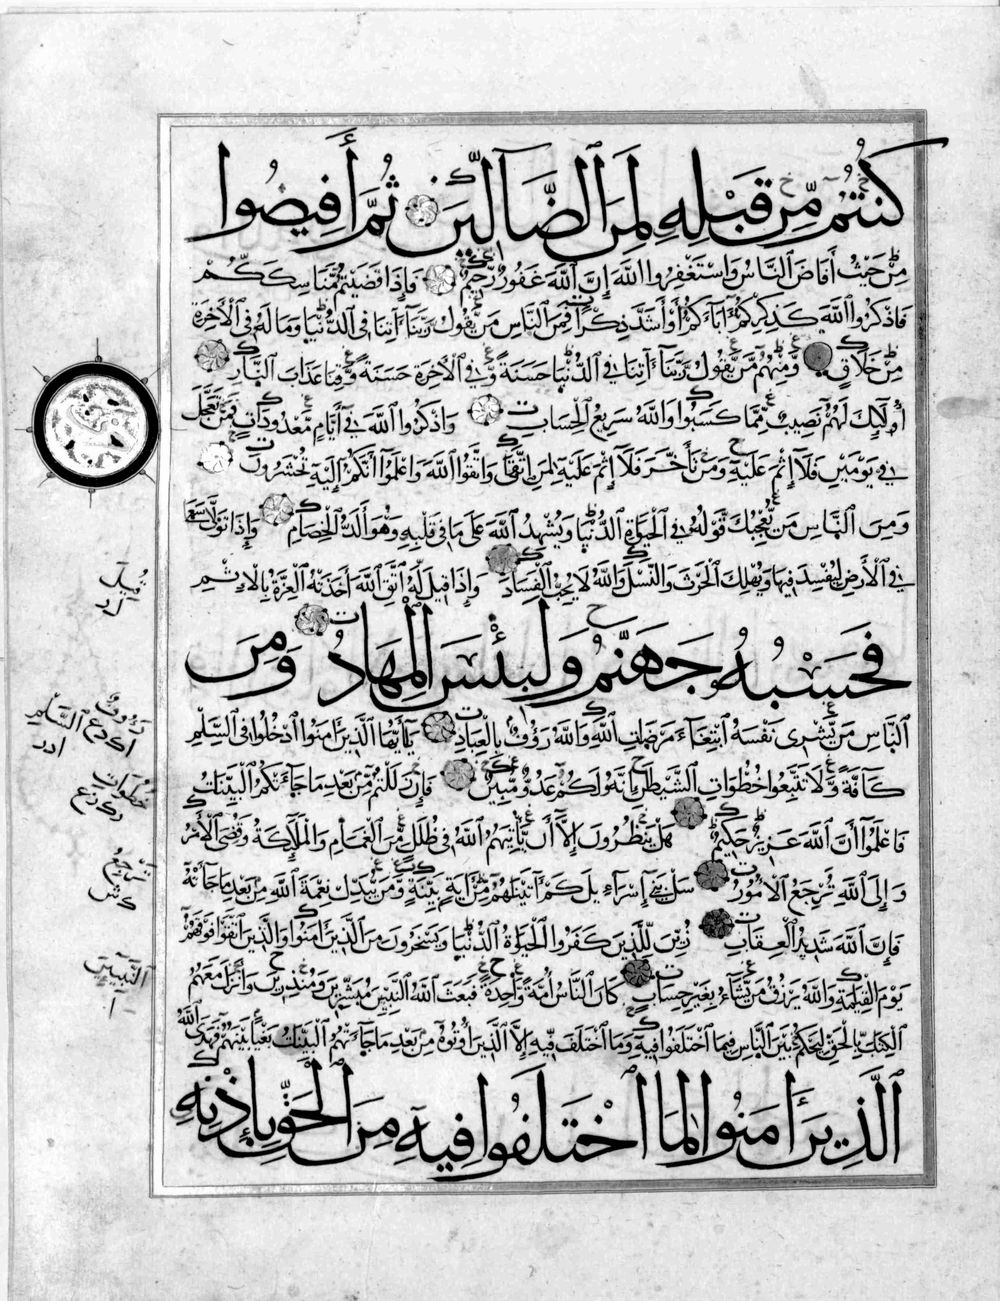 كُنتُم مِّن قَبْلِهِ لَمِنَ الضَّالِّينَ ثُمَّ أَفِيضُوا
مِنْ حَيْثُ أَفَاضَ النَّاسُ وَاسْتَغْفِرُوا اللَّهَ إِنَّ اللَّهَ غَفُورٌ رَّحِيمٌ فَإِذَا قَضَيْتُم مَّنَاسِكَكُمْ
فَاذْكُرُوا اللَّهَ كَذِكْرِكُمْ آبَاءَكُمْ أَوْ أَشَدَّ ذِكْرًا فَمِنَ النَّاسِ مَن يَقُولُ رَبَّنَا آتِنَا فِي الدُّنْيَا وَمَا لَهُ فِي الْآخِرَةِ
مِنْ خَلَاقٍ وَمِنْهُم مَّن يَقُولُ رَبَّنَا آتِنَا فِي الدُّنْيَا حَسَنَةً وَفِي الْآخِرَةِ حَسَنَةً وَقِنَا عَذَابَ النَّارِ
أُولَٰئِكَ لَهُمْ نَصِيبٌ مِّمَّا كَسَبُوا وَاللَّهُ سَرِيعُ الْحِسَابِ وَاذْكُرُوا اللَّهَ فِي أَيَّامٍ مَّعْدُودَاتٍ فَمَن تَعَجَّلَ
فِي يَوْمَيْنِ فَلَا إِثْمَ عَلَيْهِ وَمَن تَأَخَّرَ فَلَا إِثْمَ عَلَيْهِ لِمَنِ اتَّقَىٰ وَاتَّقُوا اللَّهَ وَاعْلَمُوا أَنَّكُمْ إِلَيْهِ تُحْشَرُونَ
وَمِنَ النَّاسِ مَن يُعْجِبُكَ قَوْلُهُ فِي الْحَيَاةِ الدُّنْيَا وَيُشْهِدُ اللَّهَ عَلَىٰ مَا فِي قَلْبِهِ وَهُوَ أَلَدُّ الْخِصَامِ وَإِذَا تَوَلَّىٰ سَعَىٰ
فِي الْأَرْضِ لِيُفْسِدَ فِيهَا وَيُهْلِكَ الْحَرْثَ وَالنَّسْلَ وَاللَّهُ لَا يُحِبُّ الْفَسَادَ وَإِذَا قِيلَ لَهُ اتَّقِ اللَّهَ أَخَذَتْهُ الْعِزَّةُ بِالْإِثْمِ
فَحَسْبُهُ جَهَنَّمُ وَلَبِئْسَ الْمِهَادُ وَمِنَ
النَّاسِ مَن يَشْرِي نَفْسَهُ ابْتِغَاءَ مَرْضَاتِ اللَّهِ وَاللَّهُ رَؤُوفٌ بِالْعِبَادِ يَا أَيُّهَا الَّذِينَ آمَنُوا ادْخُلُوا فِي السِّلْمِ
كَافَّةً وَلَا تَتَّبِعُوا خُطُوَاتِ الشَّيْطَانِ إِنَّهُ لَكُمْ عَدُوٌّ مُّبِينٌ فَإِن زَلَلْتُم مِّن بَعْدِ مَا جَاءَتْكُمُ الْبَيِّنَاتُ
فَاعْلَمُوا أَنَّ اللَّهَ عَزِيزٌ حَكِيمٌ هَلْ يَنظُرُونَ إِلَّا أَن يَأْتِيَهُمُ اللَّهُ فِي ظُلَلٍ مِّنَ الْغَمَامِ وَالْمَلَائِكَةُ وَقُضِيَ الْأَمْرُ
وَإِلَى اللَّهِ تُرْجَعُ الْأُمُورُ سَلْ بَنِي إِسْرَائِيلَ كَمْ آتَيْنَاهُم مِّنْ آيَةٍ بَيِّنَةٍ وَمَن يُبَدِّلْ نِعْمَةَ اللَّهِ مِن بَعْدِ مَا جَاءَتْهُ
فَإِنَّ اللَّهَ شَدِيدُ الْعِقَابِ زُيِّنَ لِلَّذِينَ كَفَرُوا الْحَيَاةُ الدُّنْيَا وَيَسْخَرُونَ مِنَ الَّذِينَ آمَنُوا وَالَّذِينَ اتَّقَوْا فَوْقَهُمْ
يَوْمَ الْقِيَامَةِ وَاللَّهُ يَرْزُقُ مَن يَشَاءُ بِغَيْرِ حِسَابٍ كَانَ النَّاسُ أُمَّةً وَاحِدَةً فَبَعَثَ اللَّهُ النَّبِيِّينَ مُبَشِّرِينَ وَمُنذِرِينَ وَأَنزَلَ مَعَهُمُ
الْكِتَابَ بِالْحَقِّ لِيَحْكُمَ بَيْنَ النَّاسِ فِيمَا اخْتَلَفُوا فِيهِ وَمَا اخْتَلَفَ فِيهِ إِلَّا الَّذِينَ أُوتُوهُ مِن بَعْدِ مَا جَاءَتْهُمُ الْبَيِّنَاتُ بَغْيًا بَيْنَهُمْ فَهَدَى اللَّهُ
الَّذِينَ آمَنُوا لِمَا اخْتَلَفُوا فِيهِ مِنَ الْحَقِّ بِإِذْنِهِ
قِيلَ
رَؤُوفٌ
السِّلْمِ
خُطُوَاتِ
تُرْجَعُ
النَّبِيِّينَ